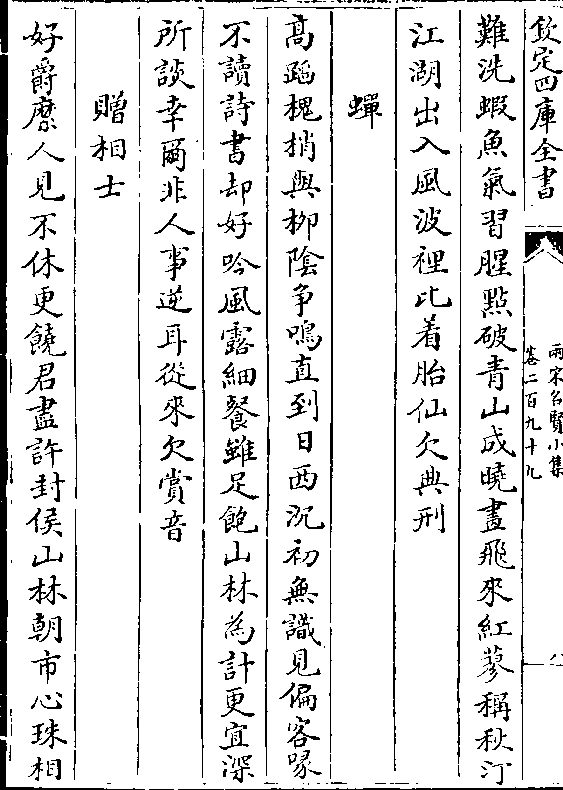 欽定四庫全書
兩宋名賢小集
卷二百九十九
八
難洗蝦魚氣習腥㸃破青山成曉畫飛來紅蓼稱秋汀
江湖出入風波裡比着胎仙欠典刑
蟬
高蹈槐梢與柳陰争鳴直到日西沉初無識見偏容喙
不讀詩書却好吟風露細餐雖足飽山林為計更宜深
所談幸爾非人事逆耳從來欠賞音
贈相士
好爵縻人見不休更饒君盡許封侯山林朝市心殊相